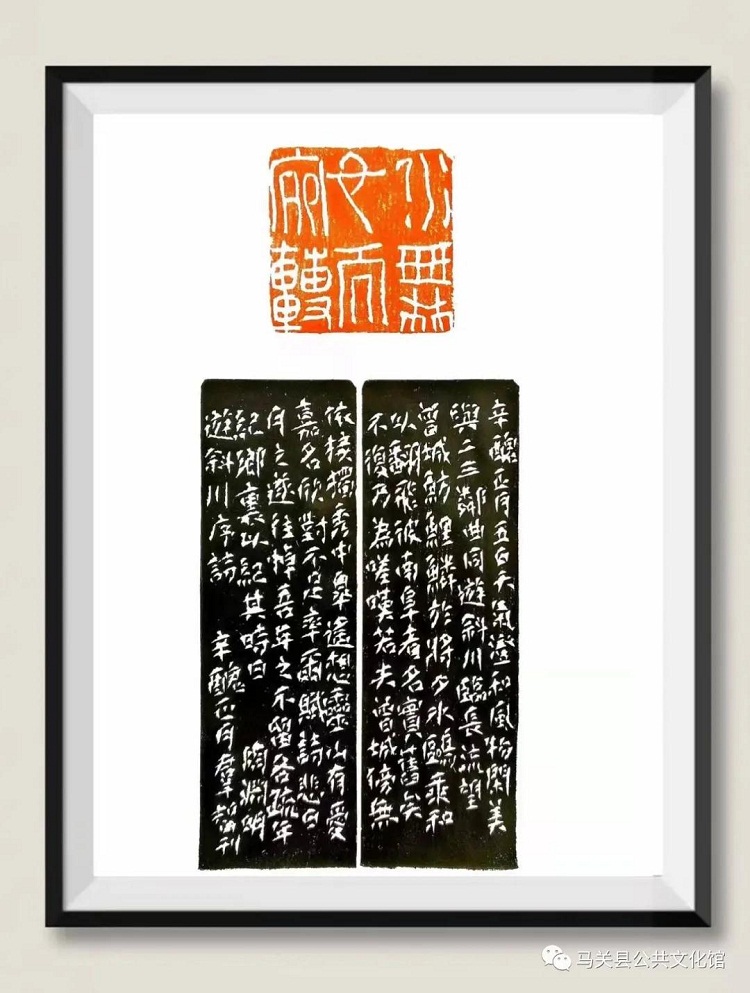 無
而
轉
辛醜正月五日天氣澄和風物閑美
與二三鄰曲同遊斜川臨長流望
曾城魴鯉鱗於將夕水鷗乘和
以翻飛彼南阜者名實舊矣
不復乃為嗟嘆若夫曾城傍無
依接獨秀中皋遙想靈山有愛
嘉名欣對不足率爾賦詩悲日
月之遂往悼吾年之不留各疏年
紀鄉裏以紀其時日 陶淵明
遊斜川序詩 辛醜正月羣刊
马关县公共文化馆